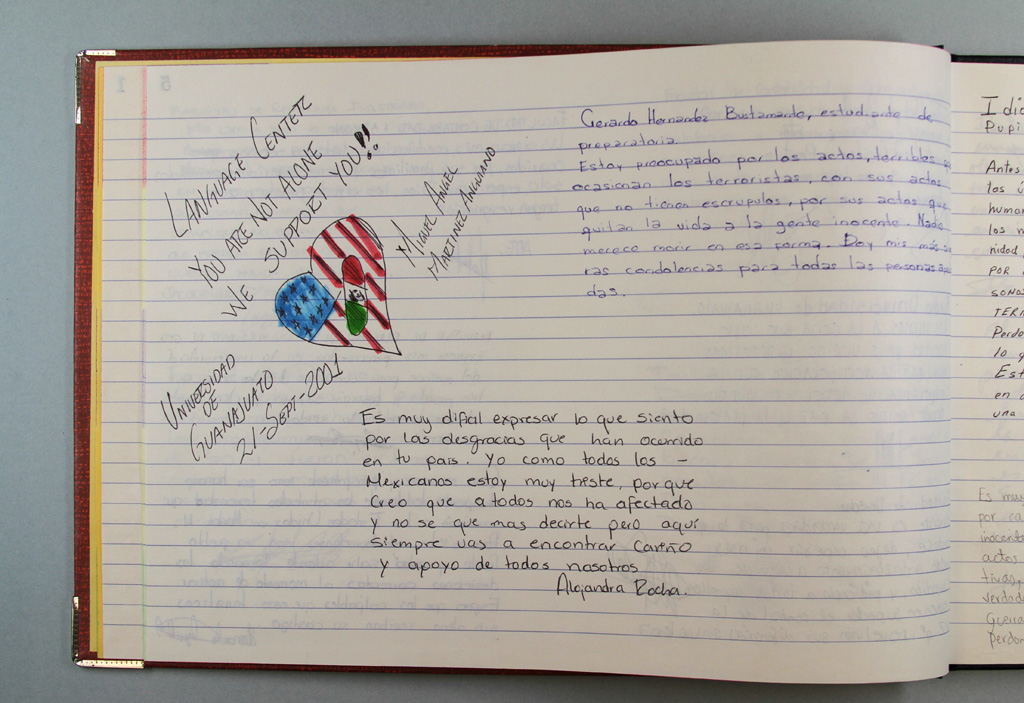 LANGUAGE CENTER
YOU ARE NOT ALONE
WE SUPPORT YOU!!
MIGUEL ANGEL
MARTINEZ ANGUIANO
UNIVERSIDAD
DE
GUANAJUATO
21-SEPT-2001
Gerardo Hernandez Bustamante, estudiante de
preparatoria.
Estoy preocupado por los actos, terribles
ocasionan los terroristas, con sus actos
que no tienen escrupulos, por sus actos que
quitan la vida a la gente inocente. Nadie
merece morir en esa forma. Doy mis más
ras condolencias para todas las personas
das.
Es muy dificil expresar lo que siento
por las desgracias que han ocurrido
en tu pais. Yo como todos los -
Mexicanos estoy muy triste, porque
Creo que a todos nos ha afectado
y no se que mas decirte pero aquí
siempre vas a encontrar Cariño
y apoyo de todos nosotros
Alejandra Rocha.
Idio
Pupi
Antes
los ú
human
los m
nidad
POR
SONAS
TERR
Perdo
lo q
Est
en
una
Es muy
por ca
inocente
actos
tivas,
verdade
Guerra
perdon